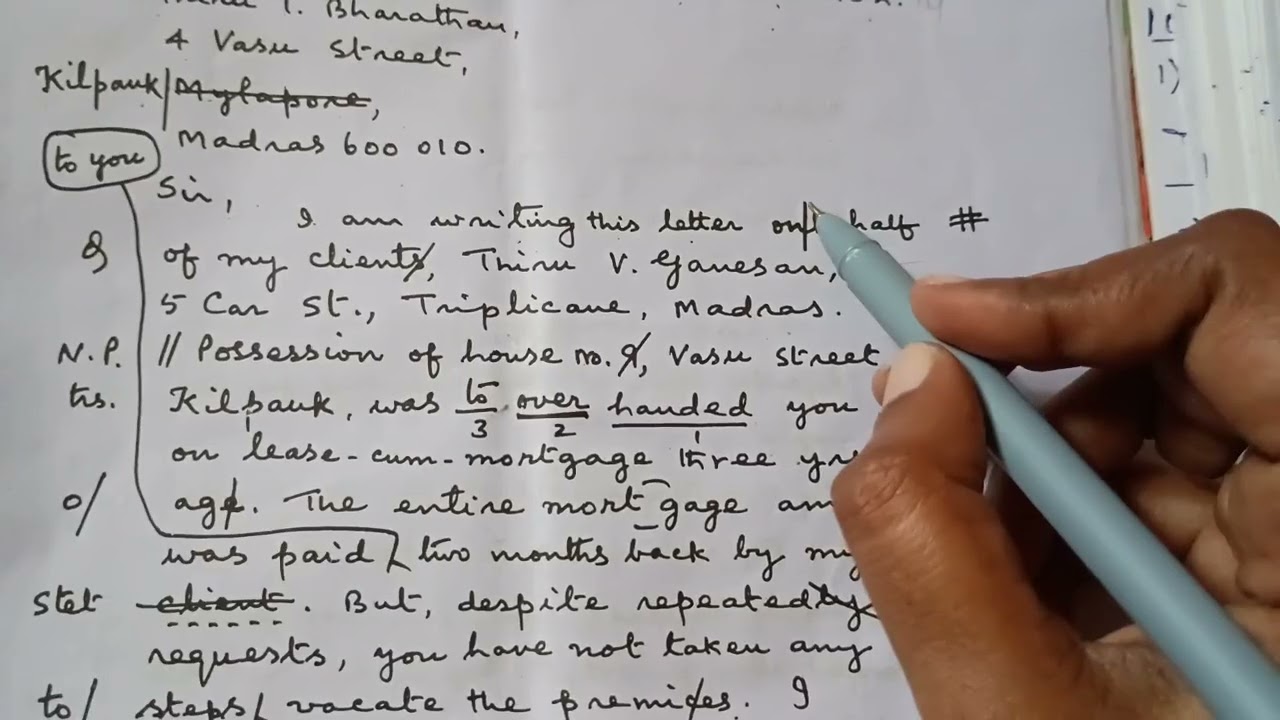 T. Bharathan,
4 Vasu Street,
Kilpauk/ Mylapore,
Madras 600 010.
to you
Sir,
I am writing this letter on half #
of my clients, Thiru V. Ganesan,
5 Car St., Triplicane, Madras.
N.P. // Possession of house no. 9, Vasu Street
trs. Kilpauk, was to over handed you
3 2 1
on lease-cum-mortgage three yrs
o/ ago. The entire mort gage am
was paid two months back by my
stet client. But, despite repeatedly
requests, you have not taken any
to/ steps vacate the premices. I
1)